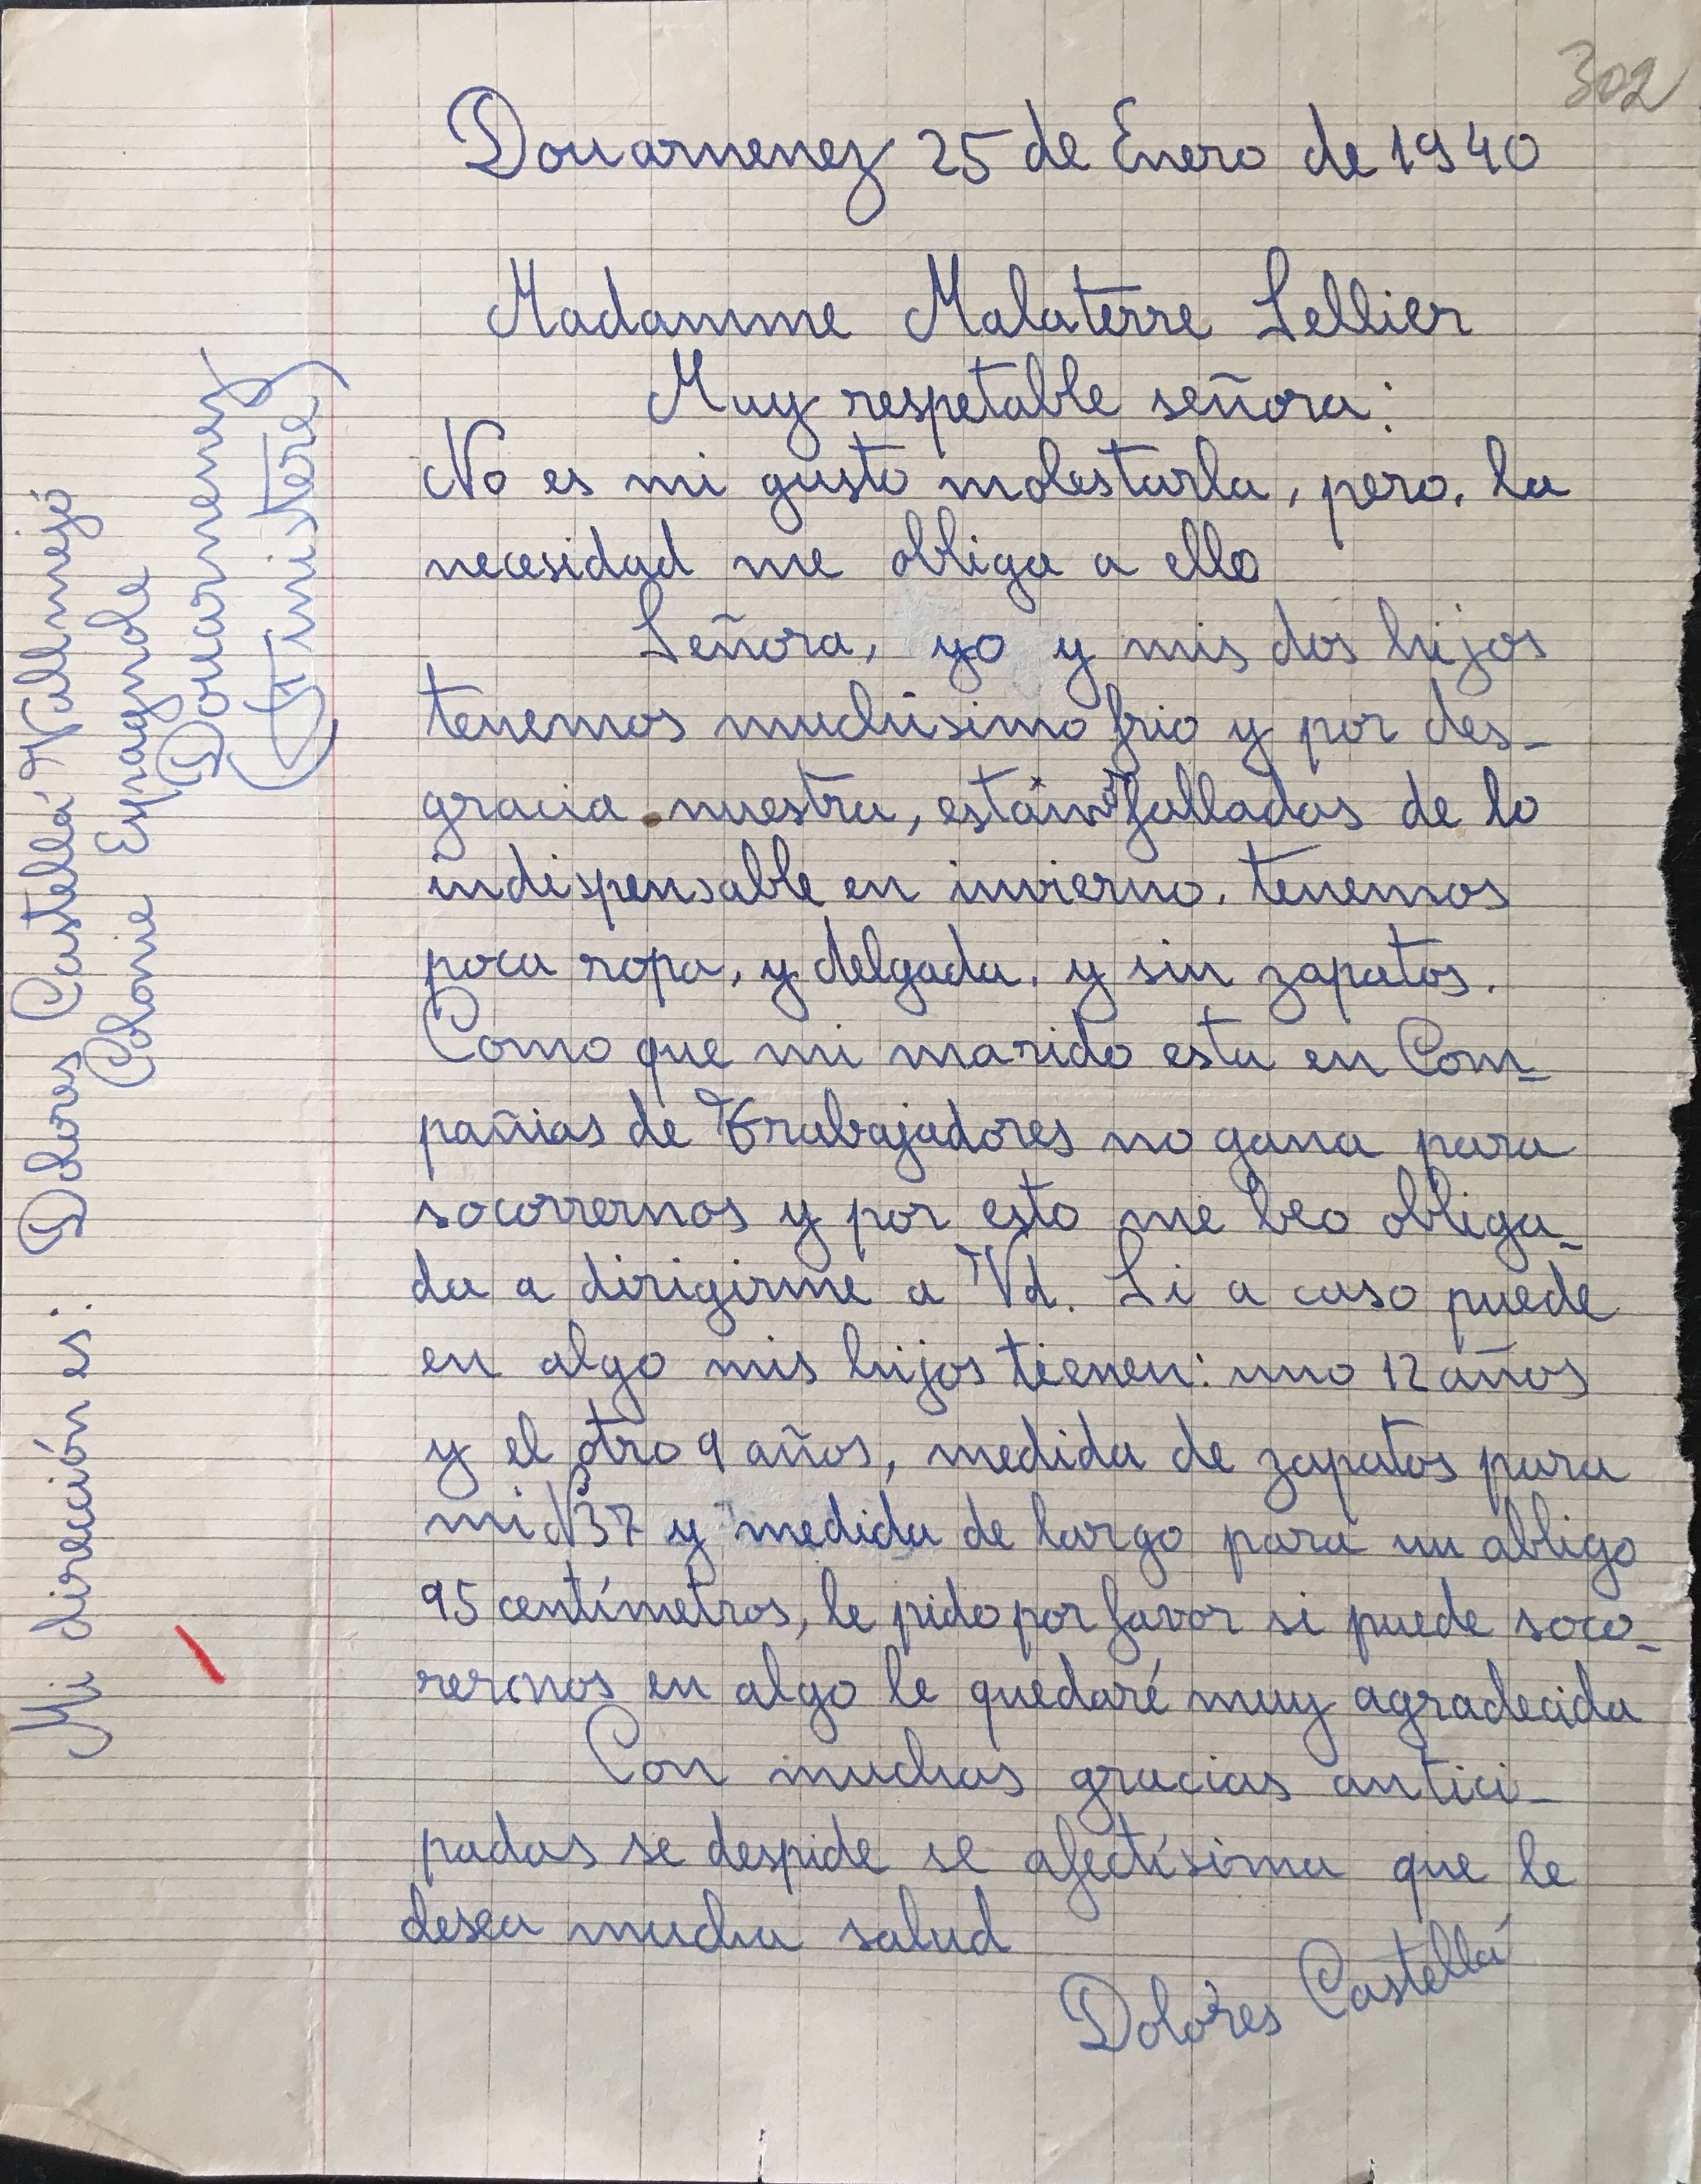 302
Douarnenez 25 de Enero de 1940
Madamme Malaterre Sellier
Muy respetable señora:
No es mi gusto molestarla, pero, la
necesidad me obliga a ello
Señora, yo y mis dos hijos
tenemos muchisimo frio y por des-
gracia nuestra, falladas de lo
indispensable en invierno. tenemos
poca ropa, y delgada. y sin zapatos.
Como que mi marido esta en Com-
pañias de Trabajadores no gana para
socorrernos y por esto me beo obliga-
da a dirigirme a Vd. Si a caso puede
en algo mis hijos tienen: uno 12 años
y el otro 9 años, medida de zapatos para
mi Nº37 y medida de largo para un abligo
95 centímetros, le pido por favor si puede soco-
rernos en algo le quedaré muy agradecida
Con muchas gracias antici-
padas se despide se afectísima que le
desea mucha salud
Dolores Castellá
Mi dirección es: Dolores Castellá Vallmajó
Colonie Espagnole
Douarnenez
Finistere